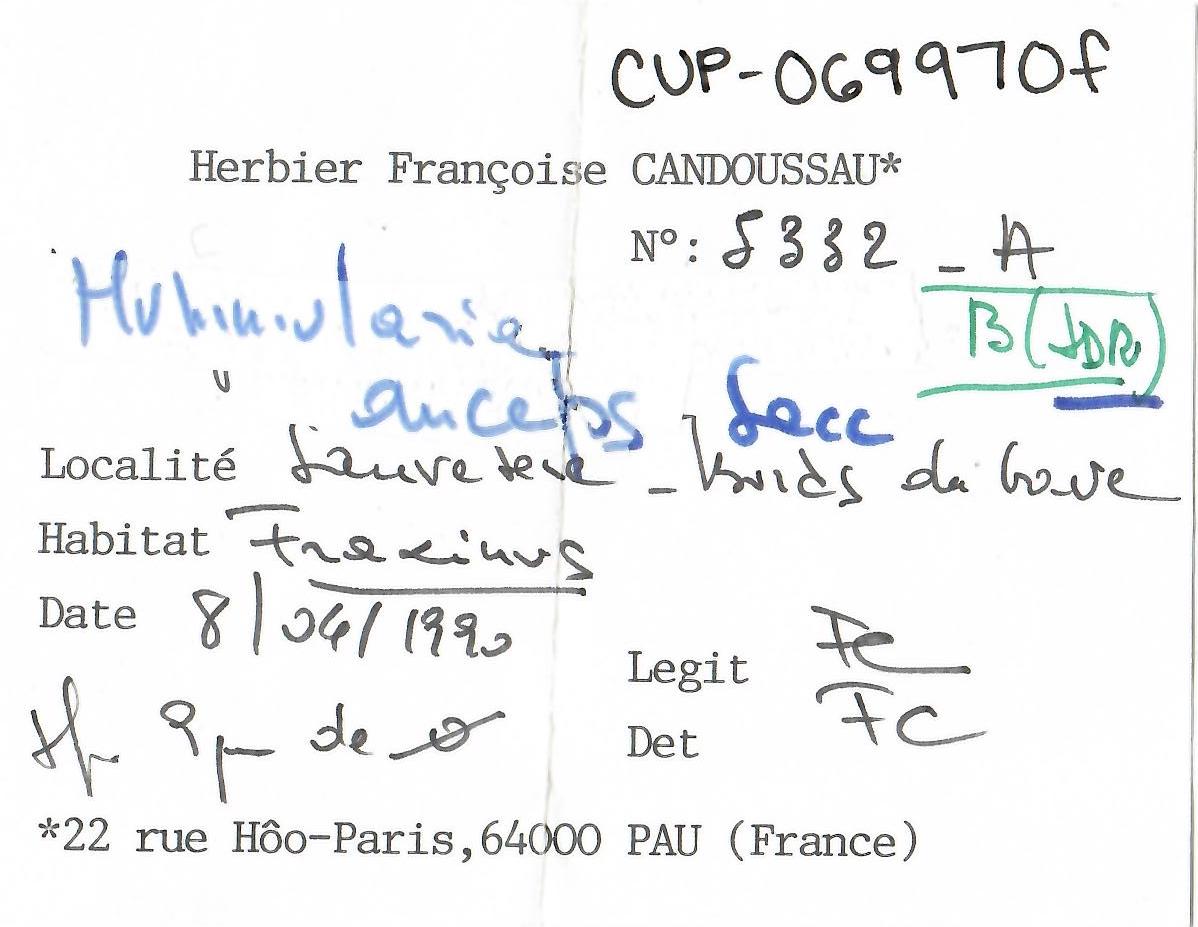 CUP-069970f
Herbier Françoise CANDOUSSAU*
N°: 5332 - A
B (JDR)
Nummularia
anceps Sacc
Localité Sauveterre - bords du Gave
Habitat Fraxinus
Date 8/04/1990
Legit FC
9µ de
Det FC
*22 rue Hôo-Paris,64000 PAU (France)